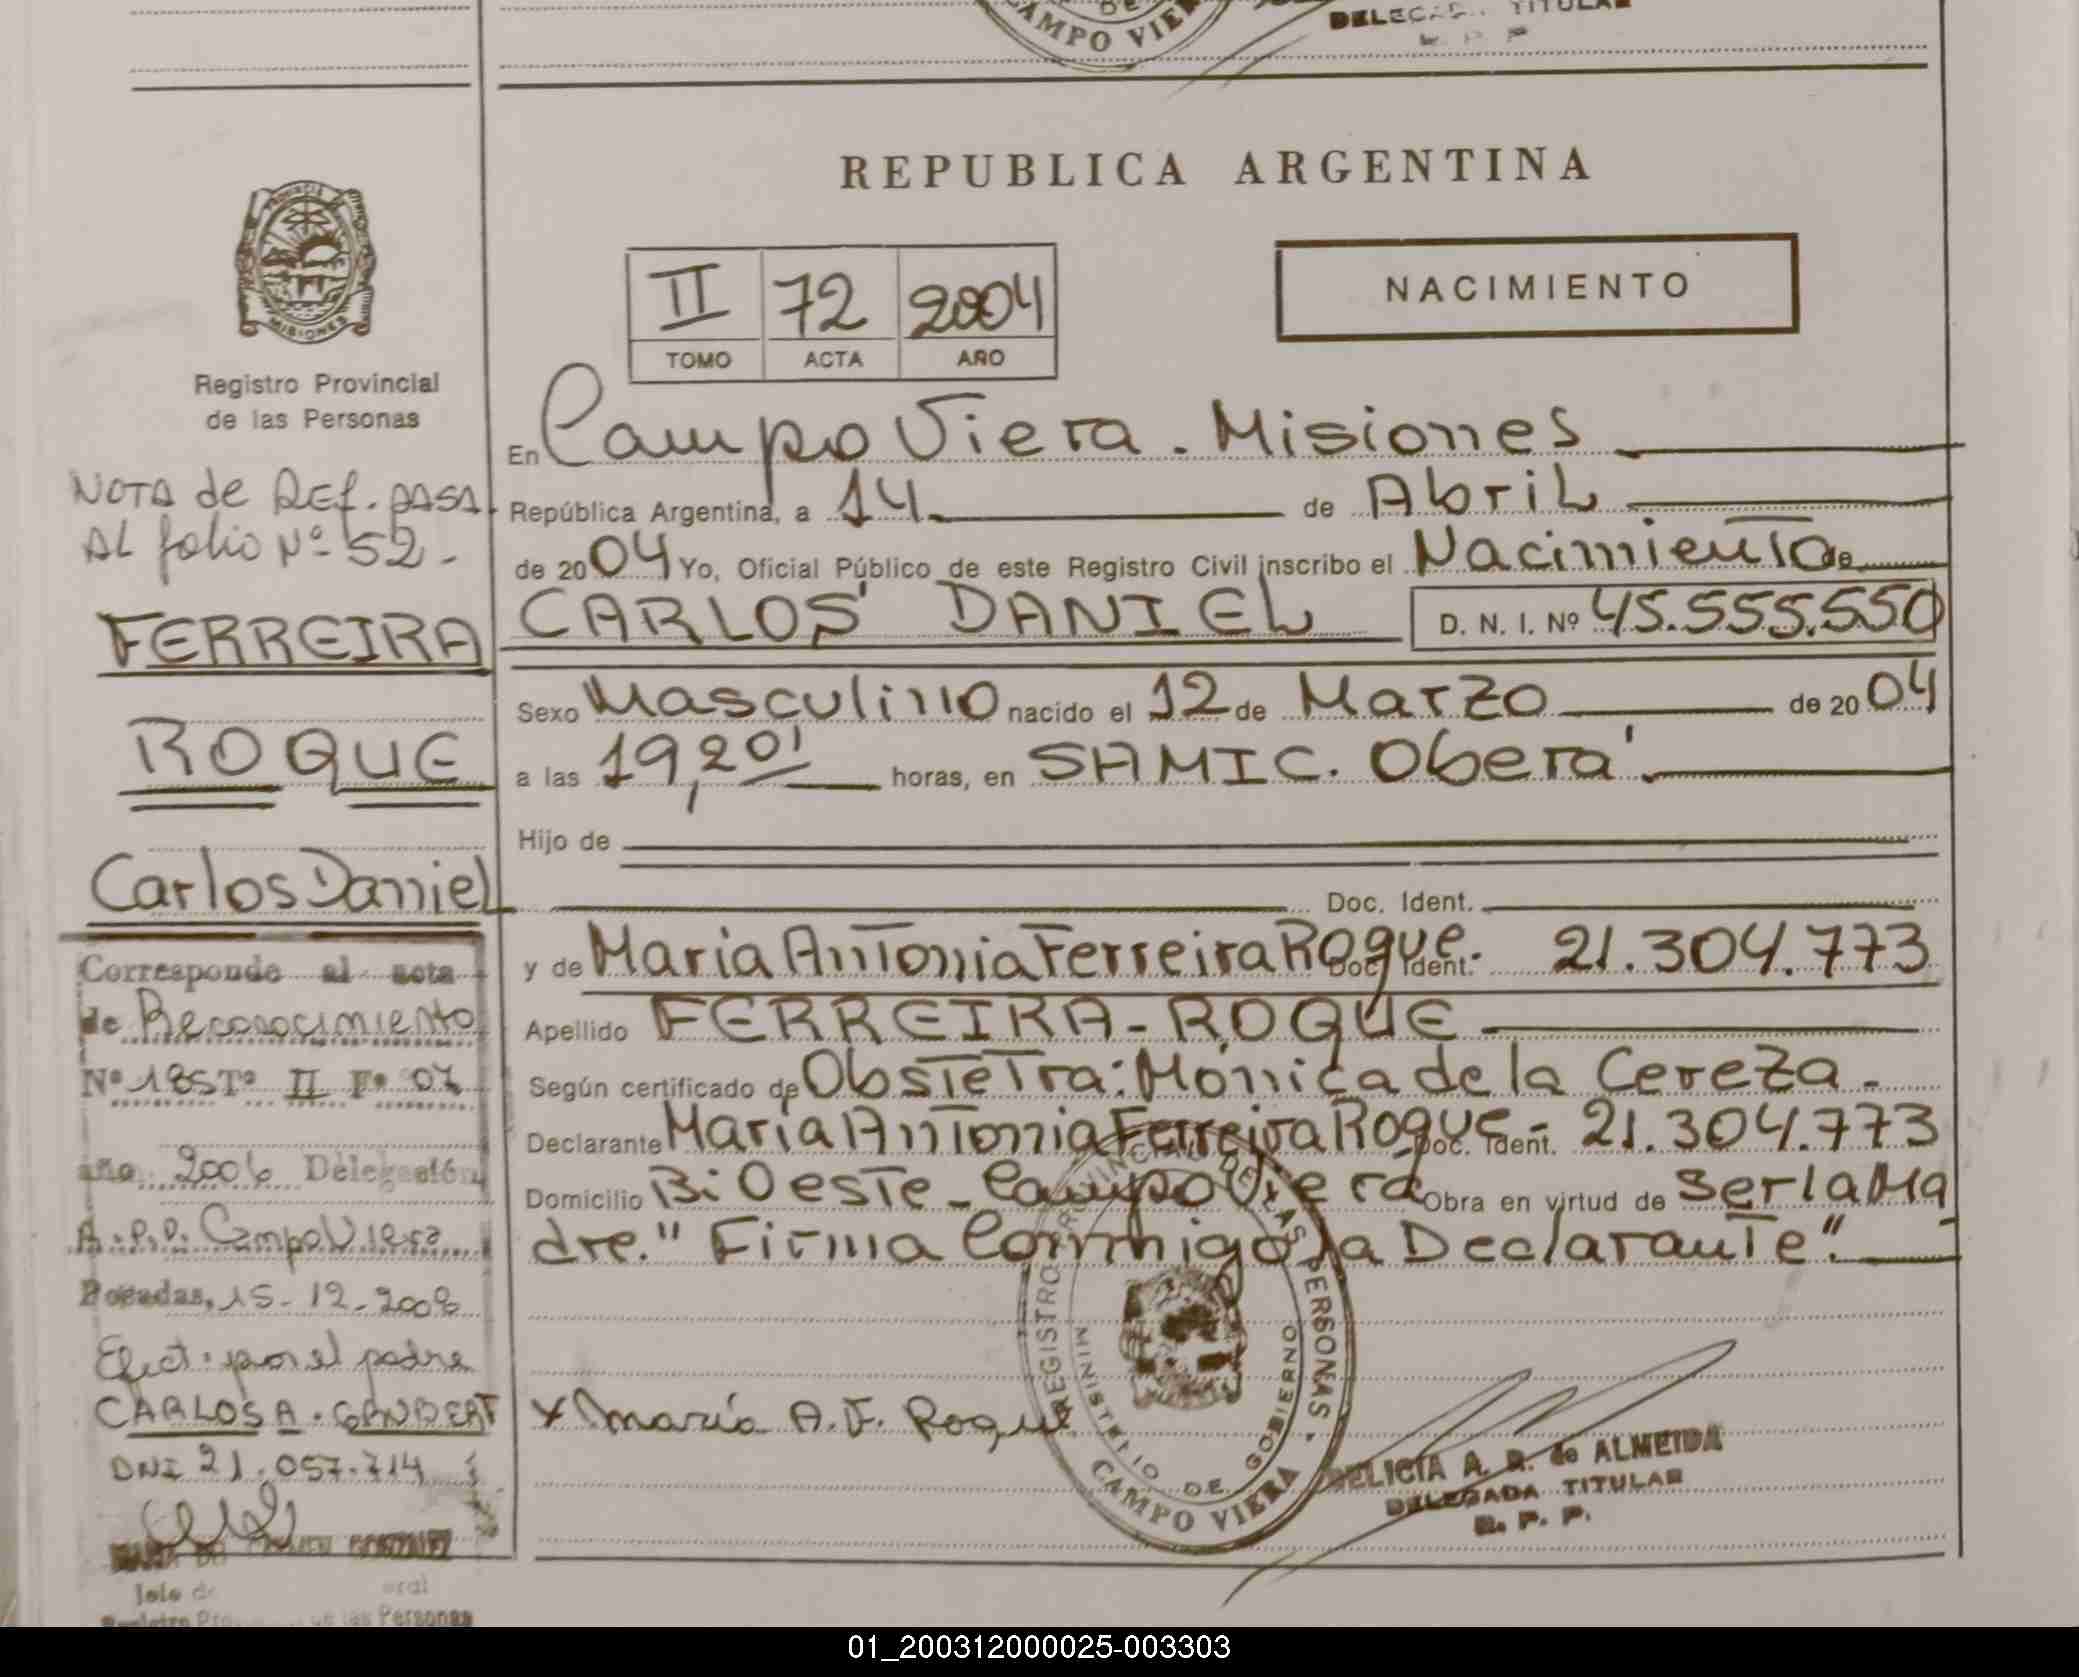 CAMPO VIERA
TITULAR
REPUBLICA ARGENTINA
II 72 2004
TOMO ACTA AÑO
NACIMIENTO
PROVINCIA
MISIONES
Registro Provincial
de las Personas
NOTA de REF. PASA
AL folio Nº 52 -
FERREIRA
ROQUE
Carlos Daniel
Corresponde al acta
de Reconocimiento
Nº 185 Tº II Fº 07
año 2006 Delegación
R.P.P. Campo Viera
Posadas, 15-12-2006
Efect. por el padre
CARLOS A.
DNI 21.057.714
Registro de las Personas
En Campo Viera. Misiones
República Argentina, a 14 de Abril
de 2004 Yo, Oficial Público de este Registro Civil inscribo el Nacimiento de
CARLOS DANIEL D. N. I. Nº 45.555.550
Sexo Masculino nacido el 12 de Marzo de 2004
a las 19,20' horas, en SAMIC. Oberá.
Hijo de
Doc. Ident.
y de Maria Antonia Ferreira Roque. Doc. Ident. 21.304.773
Apellido FERREIRA - ROQUE
Según certificado de Obstetra: Mónica de la Cereza.
Declarante Maria Antonia Ferreira Roque - Doc. Ident. 21.304.773
Domicilio Bº Oeste - Campo Viera Obra en virtud de ser la Ma
dre." Firma Conmigo la Declarante".
REGISTRO PROVINCIAL DE LAS PERSONAS
MINISTERIO DE GOBIERNO
CAMPO VIERA
x María A. F. Roque
DELICIA A. R. de ALMEIDA
DELEGADA TITULAR
R. P. P.
01_200312000025-003303